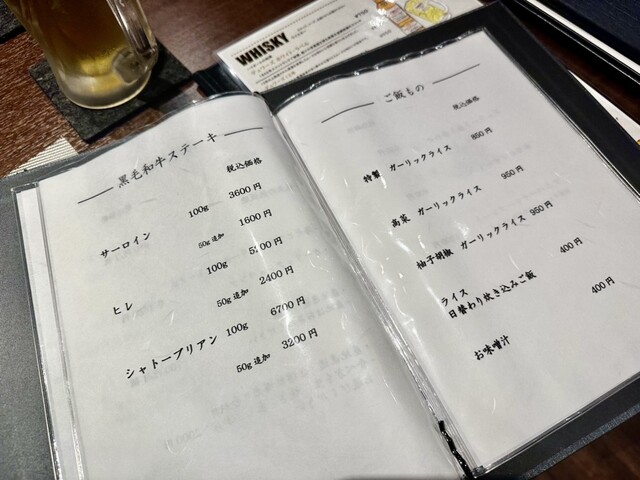 WHISKY
黒毛和牛ステーキ
税込価格
サーロイン 100g 3600円
50g追加 1600円
ヒレ 100g 5200円
50g追加 2400円
シャトーブリアン 100g 6700円
50g追加 3200円
ご飯もの
税込価格
特製 ガーリックライス 850円
高菜 ガーリックライス 950円
柚子胡椒 ガーリックライス 950円
ライス
日替わり炊き込みご飯 400円
お味噌汁 400円